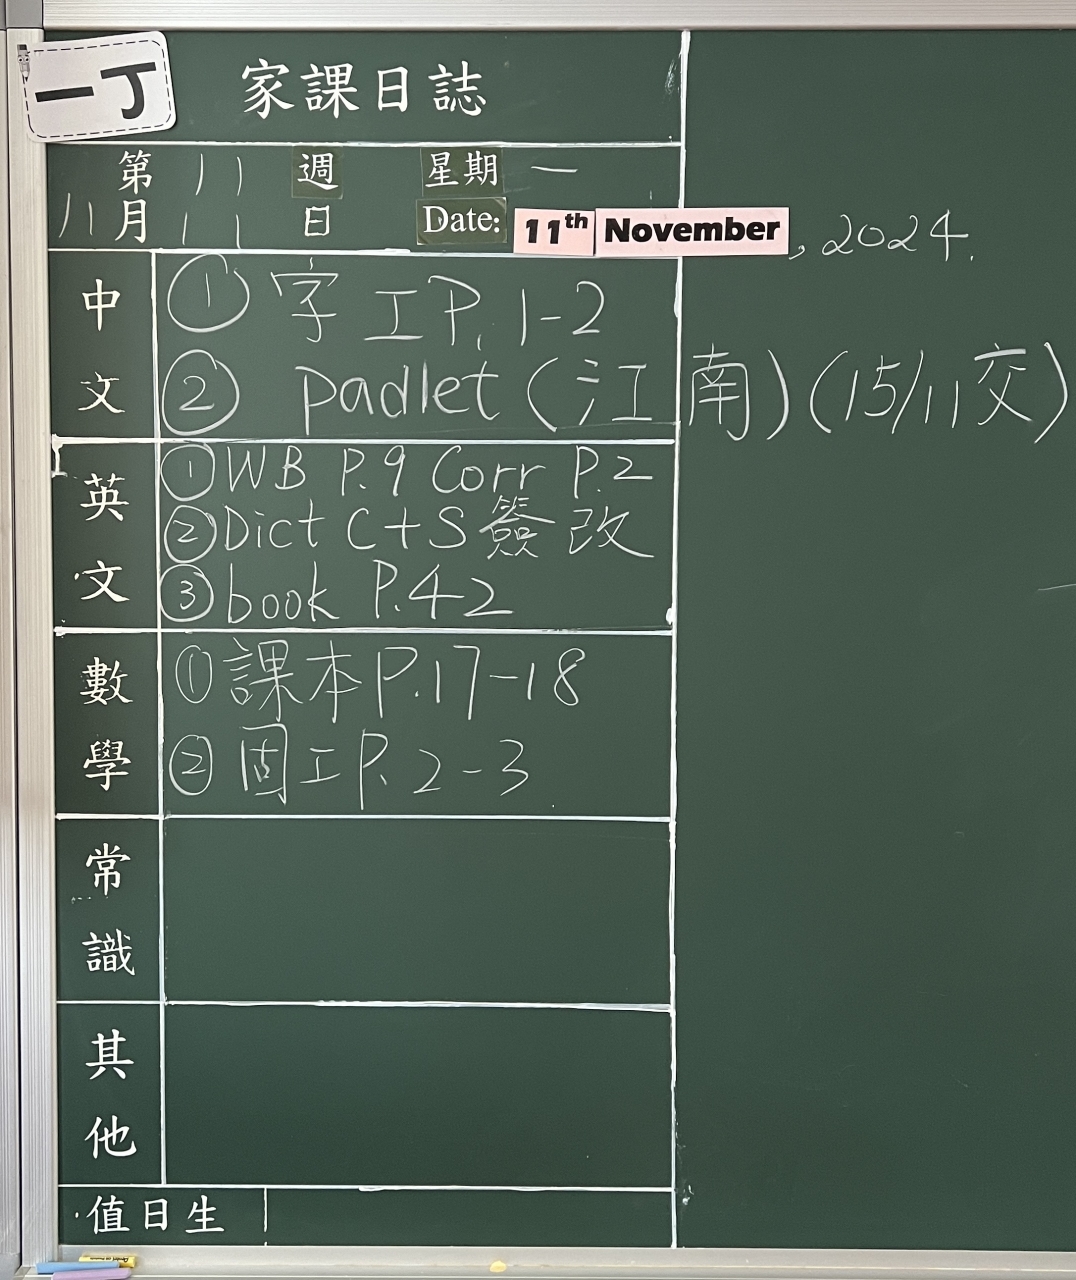 一丁
家課日誌
第 11 週 星期 一
11月 11 日 Date: 11th November, 2024.
中文
① 字工P.1-2
② padlet (江南) (15/11交)
英文
① WB P.9 Corr P.2
② Dict C+S 簽改
③ book P.42
數學
① 課本P.17-18
② 固工P.2-3
常識
其他
值日生